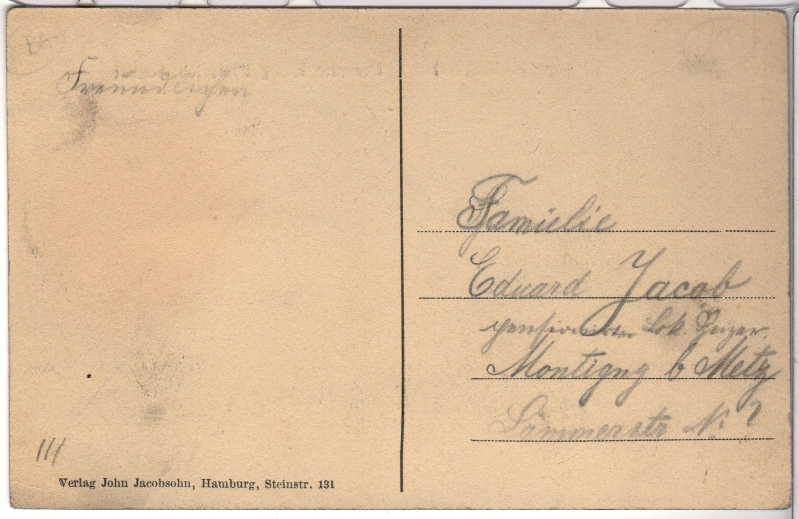 Familie
Eduard Jacob
pensionirter Lok. Heizer.
Montigny b Metz
str N. 2
111
Verlag John Jacobsohn, Hamburg, Steinstr. 131